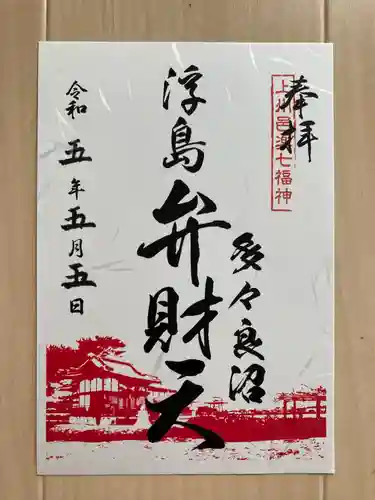 奉拝
上州邑楽七福神
多々良沼
浮島
弁財天
令和五年五月五日